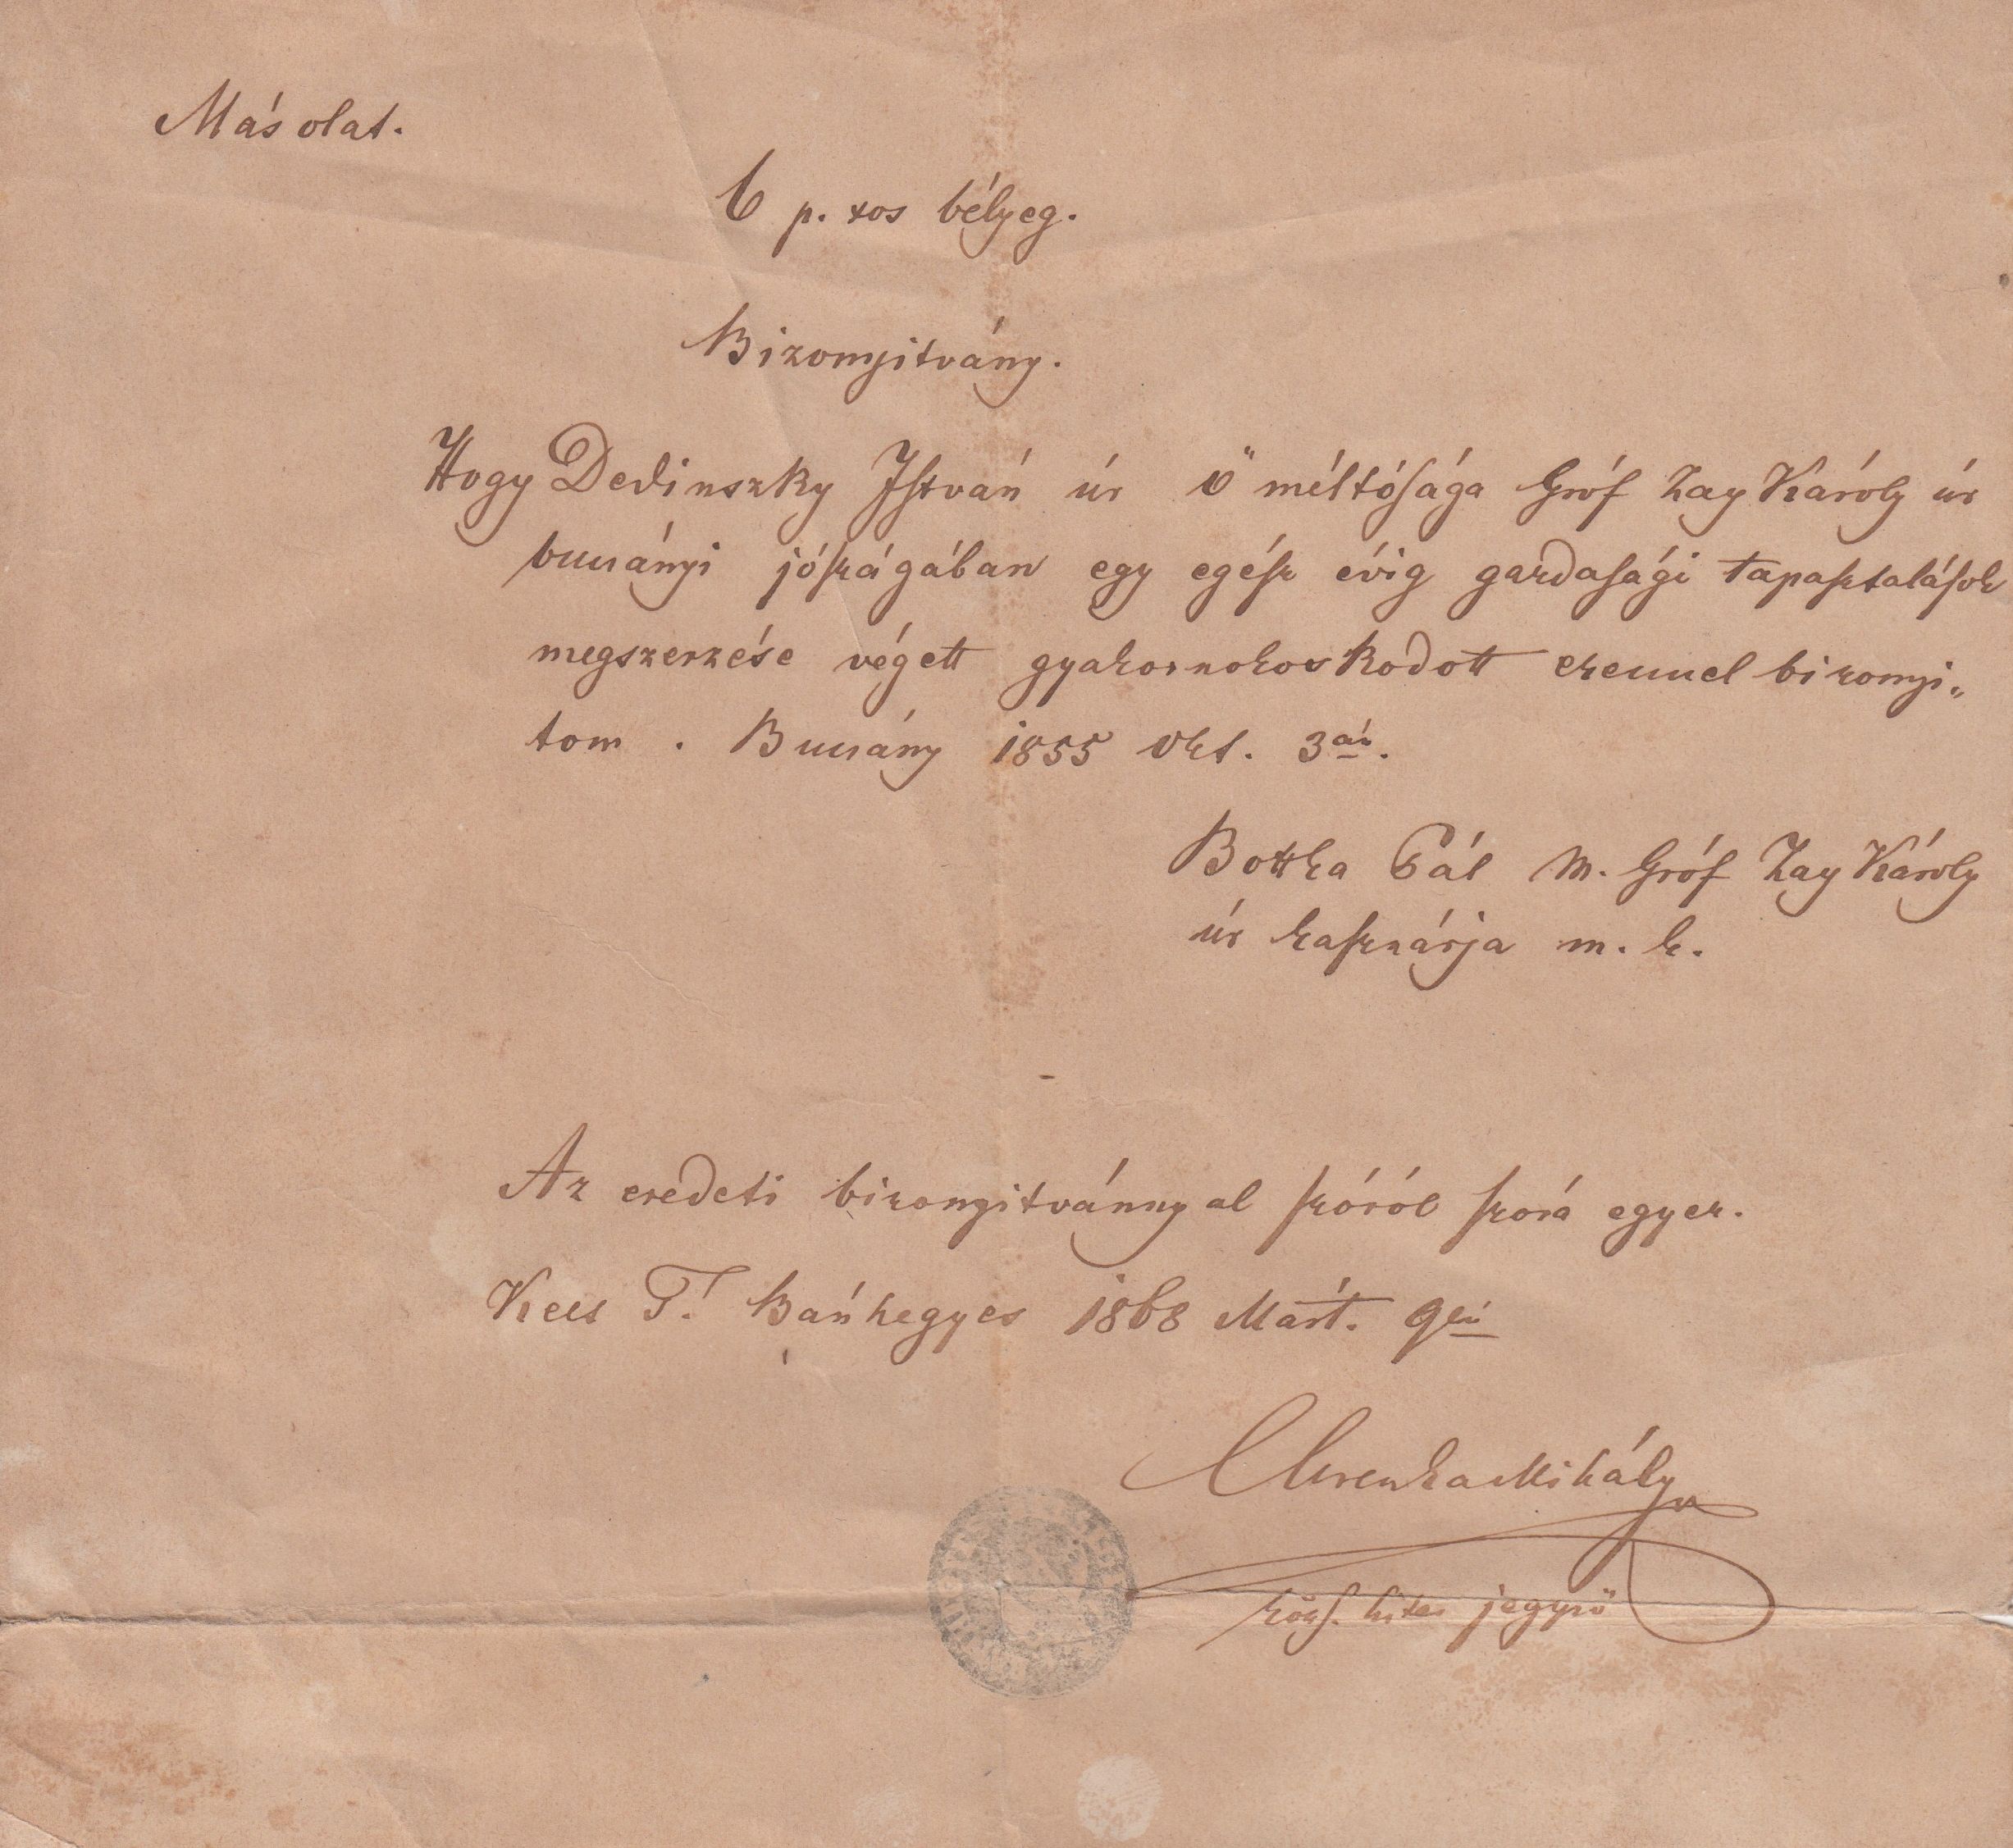 Másolat.
6 p. xos bélyeg.
Bizonyitvány.
Hogy Dedinszky István úr ő méltósága Gróf Zay Károly úr
bucsányi jószágában egy egész évig gazdasági tapasztalások
megszerzése végett gyakornokoskodott ezennel bizonyi„
tom. Bucsány 1855 Okt. 3án.
Bottka Pál M. Gróf Zay Károly
úr kasznárja m. k.
Az eredeti bizonyitvánnyal szóról szora egyez.
Kelt T. Bánhegyes 1868 Márt. 9én
Mihály
közs. hites jegyző